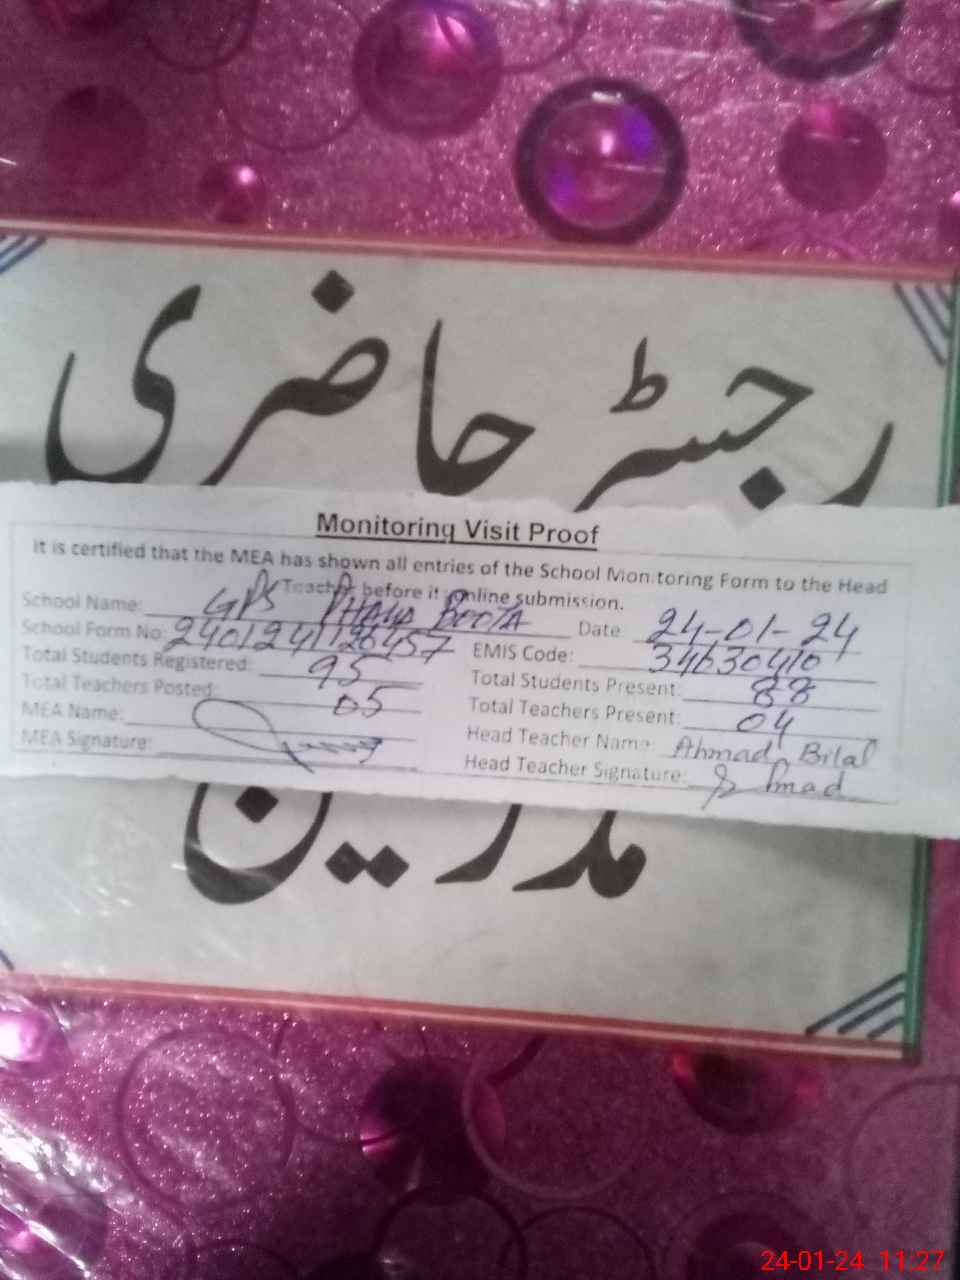 رجسٹر حاضری
Monitoring Visit Proof
It is certified that the MEA has shown all entries of the School Monitoring Form to the Head
Teacher before it online submission.
School Name: GPS BOOTA Date 24-01-24
School Form No: 2401241126457 EMIS Code: 34630410
Total Students Registered: 95 Total Students Present: 88
Total Teachers Posted: 05 Total Teachers Present: 04
MEA Name: Head Teacher Name: Ahmad Bilal
MEA Signature: Head Teacher Signature:
مدرسین
24-01-24 11:27